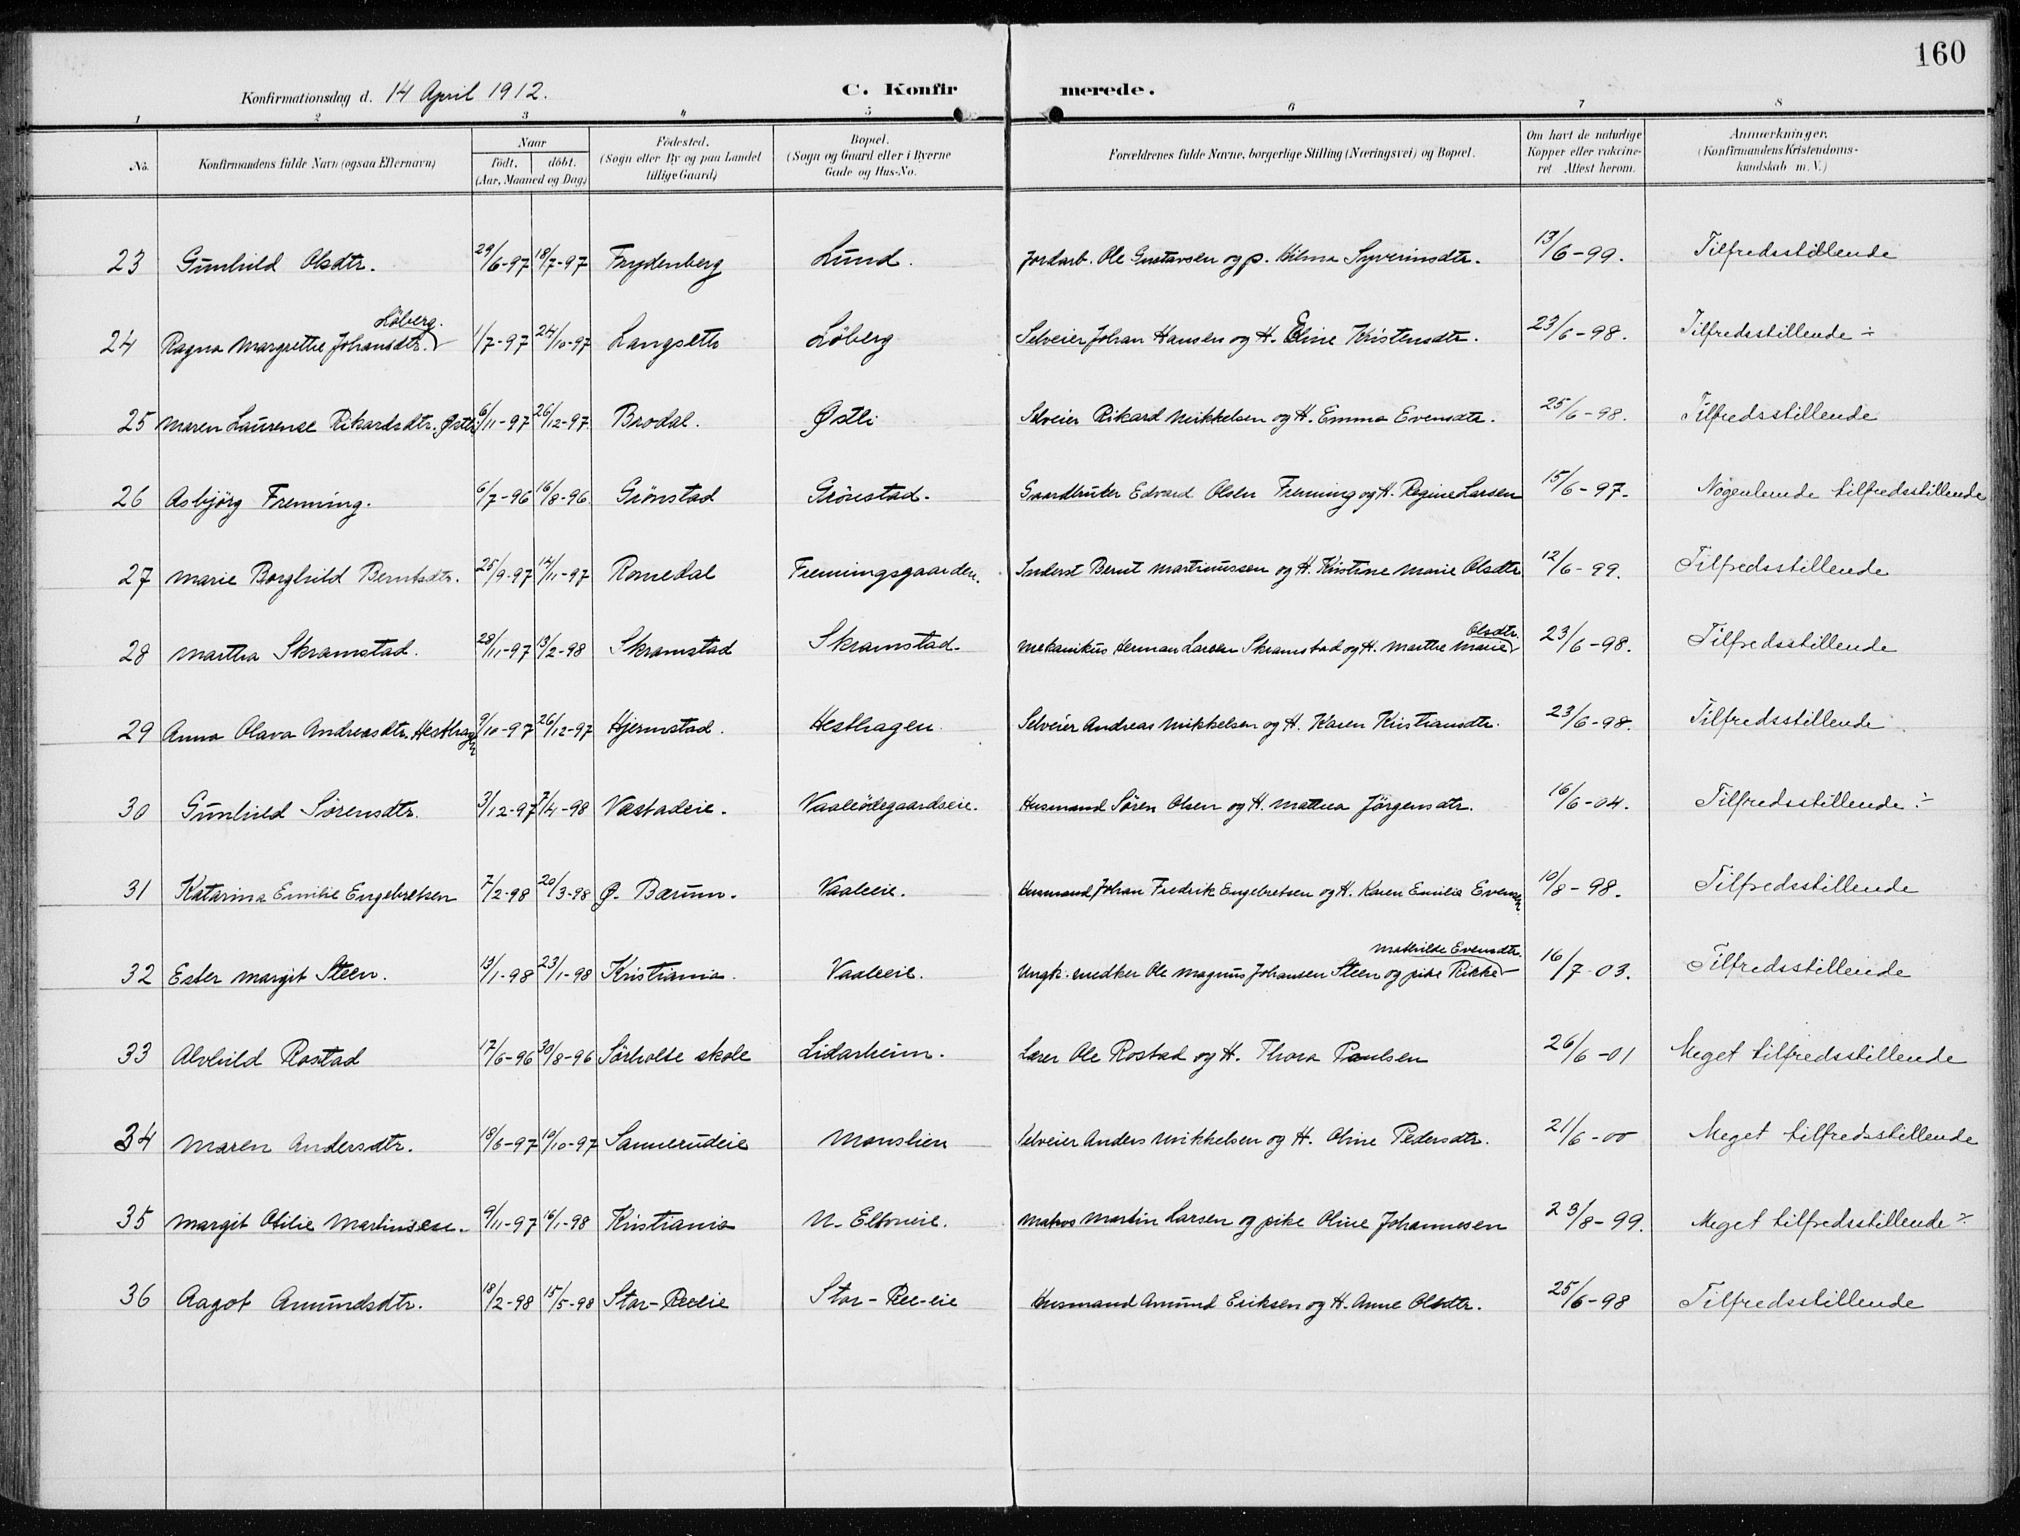 160
Konfirmationsdag d. 14 April 1912. C. Konfirmerede.
1 2 3 4 5 6 7 8
No. Konfirmandens fulde Navn (ogsaa Efternavn) Naar født. døbt. (Aar, Maaned og Dag) Fødested. (Sogn eller By og paa Landet tillige Gaard) Bopæl. (Sogn og Gaard eller i Byerne Gade og Hus-No. Forældrenes fulde Navne, borgerlige Stilling (Næringsvei) og Bopæl. Om havt de naturlige Kopper eller vakcineret Attest herom. Anmærkninger. (Konfirmandens Kristendomskundskab m. V.)
23 Gunhild Olsdtr. 29/6-97 18/7-97 Frydenberg Lund. Jordarb. Ole Gustavsen og p. Hilma Syverinsdtr. 13/6-99. Tilfredsstillende
24 Ragna Margrethe Johansdtr. Løberg. 1/7-97 24/10-97 Langseth Løberg Selveier Johan Hansen og H. Eline Kristensdtr. 23/6-98. Tilfredsstillende ÷
25 Maren Laurense Rikardsdtr. Østli 6/11-97 26/12-97 Brodal. Østli Selveier Rikard Mikkelsen og H. Emma Evensdtr. 25/6-98. Tilfredsstillende
26 Asbjörg Frenning. 6/7-96 16/8-96 Grönstad Grönstad. Gaardbruker Edvard Olsen Frenning og H. Regine Larsen 15/6-97. Nogenlunde tilfredsstillende
27 Marie Borghild Berntsdtr. 25/9-97 14/11-97 Romedal Frenningsgaarden. Inderst Bernt Martinussen og H. Kristine Marie Olsdtr 12/6-99. Tilfredsstillende
28 Martha Skramstad. 28/11-97 13/2-98 Skramstad Skramstad. Mekanikus Herman Larsen Skramstad og H. Marthe Marie Olsdtr. 23/6-98. Tilfredsstillende
29 Anna Olava Andreasdtr. Hesthagen 9/10-97 26/12-97 Hjermstad. Hesthagen. Selveier Andreas Mikkelsen og H. Karen Kristiansdtr. 23/6-98. Tilfredsstillende
30 Gunhild Sørensdtr. 3/12-97 7/4-98 Væstadeie. Vaaleödegaardseie. Husmand Søren Olsen og H. Mathea Jörgensdtr. 16/6-04. Tilfredsstillende ÷
31 Katarina Emilie Engebretsen 7/2-98 20/3-98 Ø. Bærum. Vaaleeie. Husmand Johan Fredrik Engebretsen og H. Karen Emilia Evensen 10/8-98. Tilfredsstillende
32 Ester Margit Steen. 13/1-98 23/1-98 Kristiania. Vaaleeie. Ungk. snedker Ole Magnus Johansen Steen og pike Rikke Mathilde Evensdtr. 16/7-03. Tilfredsstillende
33 Alvhild Rostad 17/6-96 30/8-96 Sörholte skole Lidarheim. Lærer Ole Rostad og H. Thora Paulsen 26/6-01 Meget tilfredsstillende
34 Maren Andersdtr. 18/6-97 10/10-97 Sannerudeie Monslien Selveier Anders Mikkelsen og H. Oline Pedersdtr. 21/6-00 Meget tilfredsstillende
35 Margit Otilie Martinsen. 9/11-97 16/1-98 Kristiania N. Eltoneie. Matros Martin Larsen og pike Oline Johannesen 23/8-99. Meget tilfredsstillende ÷
36 Aagot Amundsdtr. 18/2-98 15/5-98 Stor-Reeie Stor-Ree-eie Husmand Amund Eriksen og H. Anne Olsdtr. 25/6-98 Tilfredsstillende